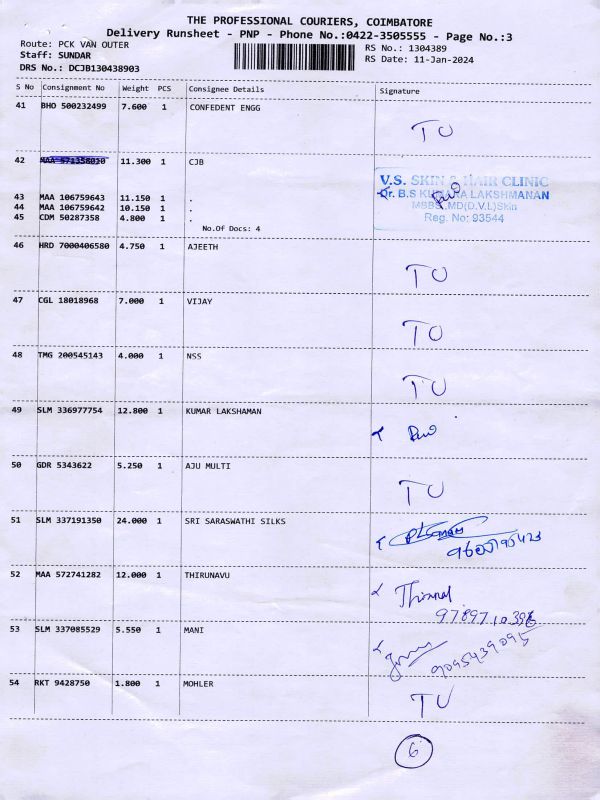 THE PROFESSIONAL COURIERS, COIMBATORE
Delivery Runsheet - PNP - Phone No.:0422-3505555 - Page No.:3
Route: PCK VAN OUTER
RS No.: 1304389
Staff: SUNDAR
RS Date: 11-Jan-2024
DRS No.: DCJB130438903
S No Consignment No Weight PCS Consignee Details Signature
41 BHO 500232499 7.600 1 CONFEDENT ENGG
TO
42 MAA 571358020 11.300 1 CJB
V.S. SKIN & HAIR CLINIC
43 MAA 106759643 11.150 1 . Dr. B.S KUMARA LAKSHMANAN
44 MAA 106759642 10.150 1 . MBBS.,MD(D.V.L)Skin
45 CDM 50287358 4.800 1 . Reg. No: 93544
No.Of Docs: 4
46 HRD 7000406580 4.750 1 AJEETH
TO
47 CGL 18018968 7.000 1 VIJAY
TO
48 TMG 200545143 4.000 1 NSS
TO
49 SLM 336977754 12.800 1 KUMAR LAKSHAMAN
50 GDR 5343622 5.250 1 AJU MULTI
TO
51 SLM 337191350 24.000 1 SRI SARASWATHI SILKS
52 MAA 572741282 12.000 1 THIRUNAVU
53 SLM 337085529 5.550 1 MANI
9095439095
54 RKT 9428750 1.800 1 MOHLER
TO
6